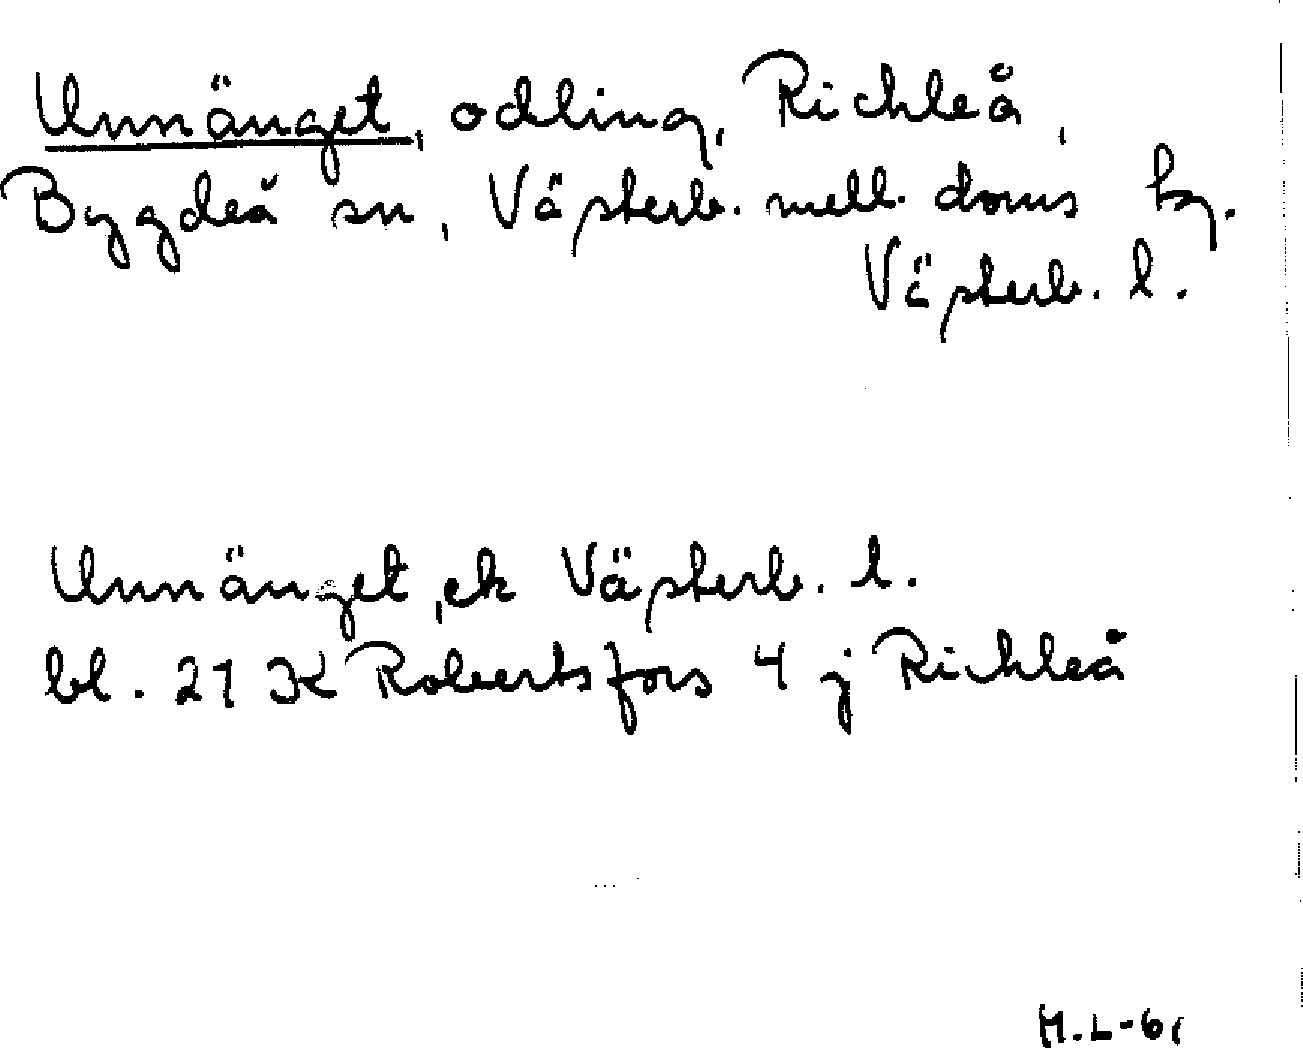 Unnänget, odling, Richleå,
Bygdeå sn, Västerb. mell. doms hg.
Västerb. l.
Unnänget, ek Västerb. l.
bl. 21 K Robertsfors 4 j Richleå
M.L-61